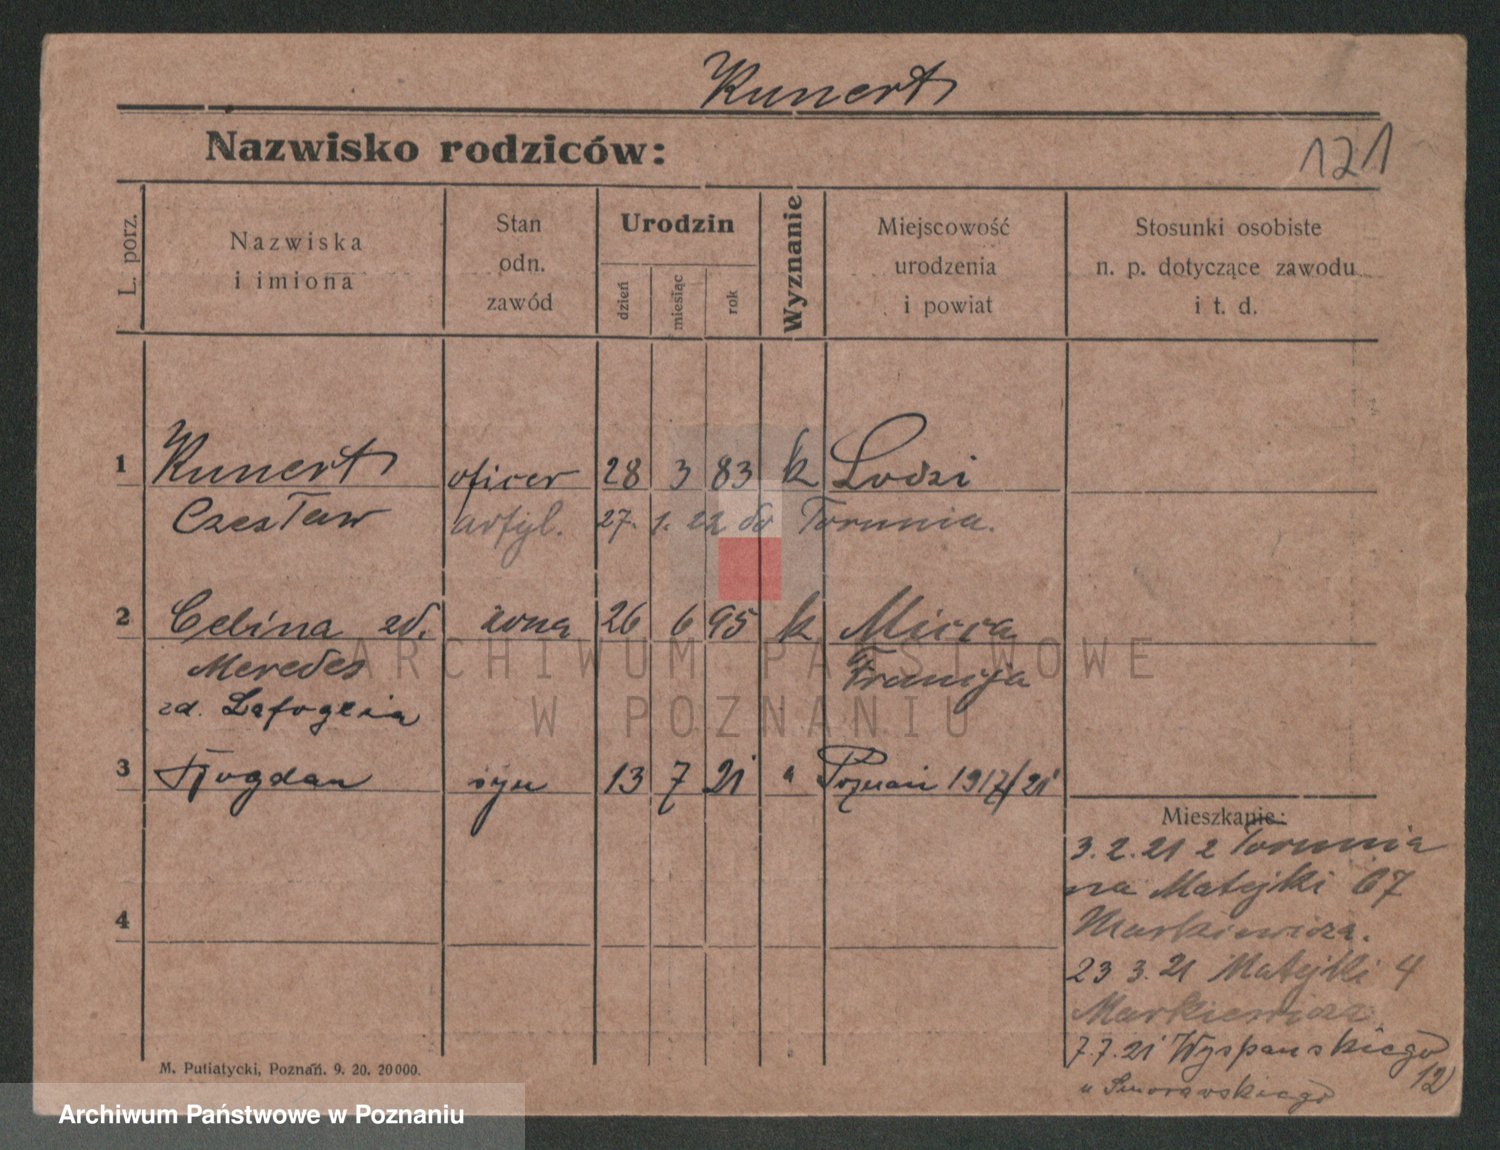 Kunert
Nazwisko rodziców:
121
L. porz.
Nazwiska
i imiona
Stan
odn.
zawód
Urodzin
dzień
miesiąc
rok
Wyznanie
Miejscowość
urodzenia
i powiat
Stosunki osobiste
n. p. dotyczące zawodu
i t. d.
1 Kunert oficer 28 3 83 k Lodzi
Czesław artyl. 27. 1. 22 do Torunia.
2 Celina zd. żona 26 6 95 k
Mercedes Francja
zd. Lafoglia
3 Bogdan syn 13 7 21 Poznań 1917/21
Mieszkanie:
3. 2. 21 z Torunia
na Matejki 67
Markiewicza.
4
23 3. 21 Matejki 4
Markiewicz
7.7.21 Wyspanskiego
12
u Smorawskiego
M. Putiatycki, Poznań. 9. 20. 20000.
ARCHIWUM PAŃSTWOWE
W POZNANIU
Archiwum Państwowe w Poznaniu